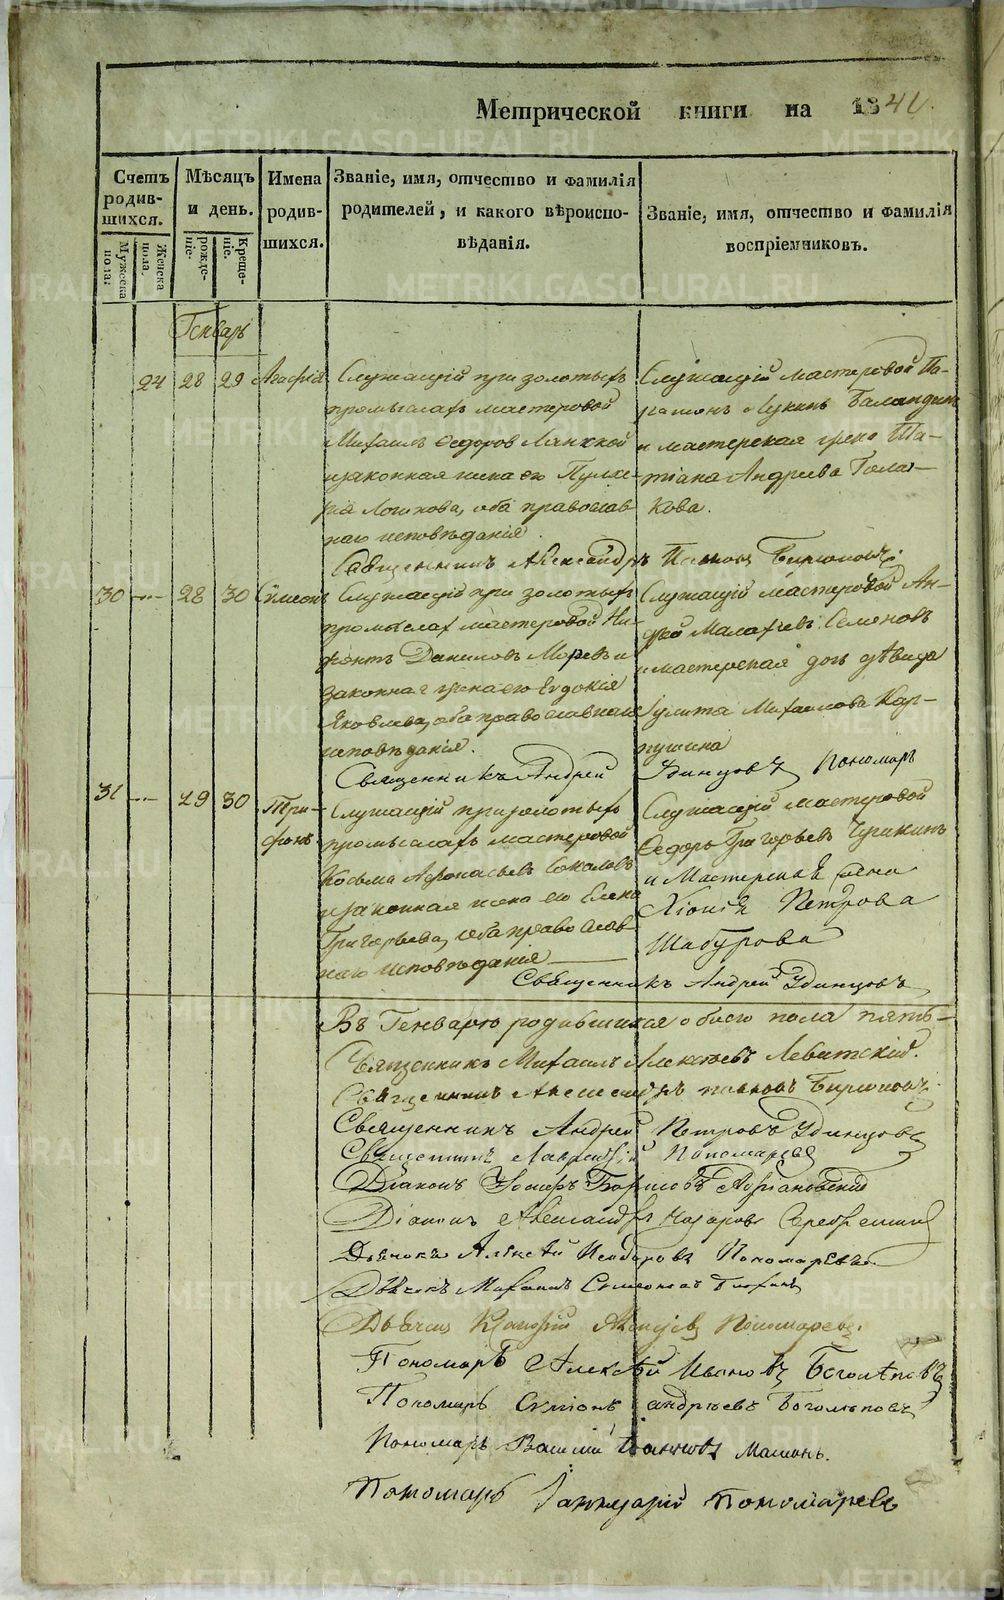 Метрической книги на 184
Счетъ родив-шихся.
Мужеска пола.
Женска пола.
Мѣсяцъ и день.
рожде-ніе.
Креще-ніе.
Имена родив-шихся.
Званіе, имя, отчество и фамилія
родителей, и какого вѣроиспо-
вѣданія.
Званіе, имя, отчество и фамилія
воспріемниковъ.
Генварь
24 28 29 Агафія
Служащій при золотыхъ
промыслахъ мастеровой
Михаилъ Ѳедоров
изаконная жена его Пулхе-
рія
оба православ
наго исповѣданія
Служащій мастеровой Па-
рамонъ Лукинъ Баландинъ
и мастерская жена Та-
тіана Андреева Пола-
кова.
Священникъ Александръ
30 28 30 Сѵмеонъ
Служащій при золотыхъ
промыслах мастеровой Ни-
фонтъ Даниловъ Моревъ и
законная жена его Евдокія
Яковлева, оба православнаго
исповѣданія.
Служащій мастеровой Ан-
дрей Малафѣевъ Семеновъ
и мастерская дочь дѣвица
Іулита Михайлова Кар-
пушина
Священникъ Андрей Удинцовъ Пономарь
31 29 30 Три-
фонъ
Служащій при золотыхъ
промыслахъ мастеровой
Косьма Афонасьевъ Соколовъ
и законная жена его Елена
Григорьева, оба православ
наго исповѣданія
Служащій мастеровой
Ѳедоръ Григорьевъ
и Мастерская жена
Хіонія Петрова
Шабурова
Священникъ Андрей Удинцовъ
Въ Генварѣ родившихся обоего пола пять-
Священникъ Михаилъ Алексѣевъ Левитскій.
Священникъ Александръ
Священникъ Андрей Петровъ Удинцовъ
Священникъ Лаврентій Пономаревъ
Діаконъ Борисовъ
Діаконъ Александръ Назаровъ Серебренниковъ
Дьячокъ Алексѣй Пономаревъ
Дьячекъ Михаилъ Симеоновъ
Дьячекъ Пономаревъ.
Пономарь Алексѣй Ивановъ Боголѣповъ
Пономарь Симіонъ андрѣевъ Боголѣповъ
Пономарь Василій Ивановъ Маминъ.
Пономарь Іаннуарій Пономаревъ
METRIKI.GASO-URAL.RU